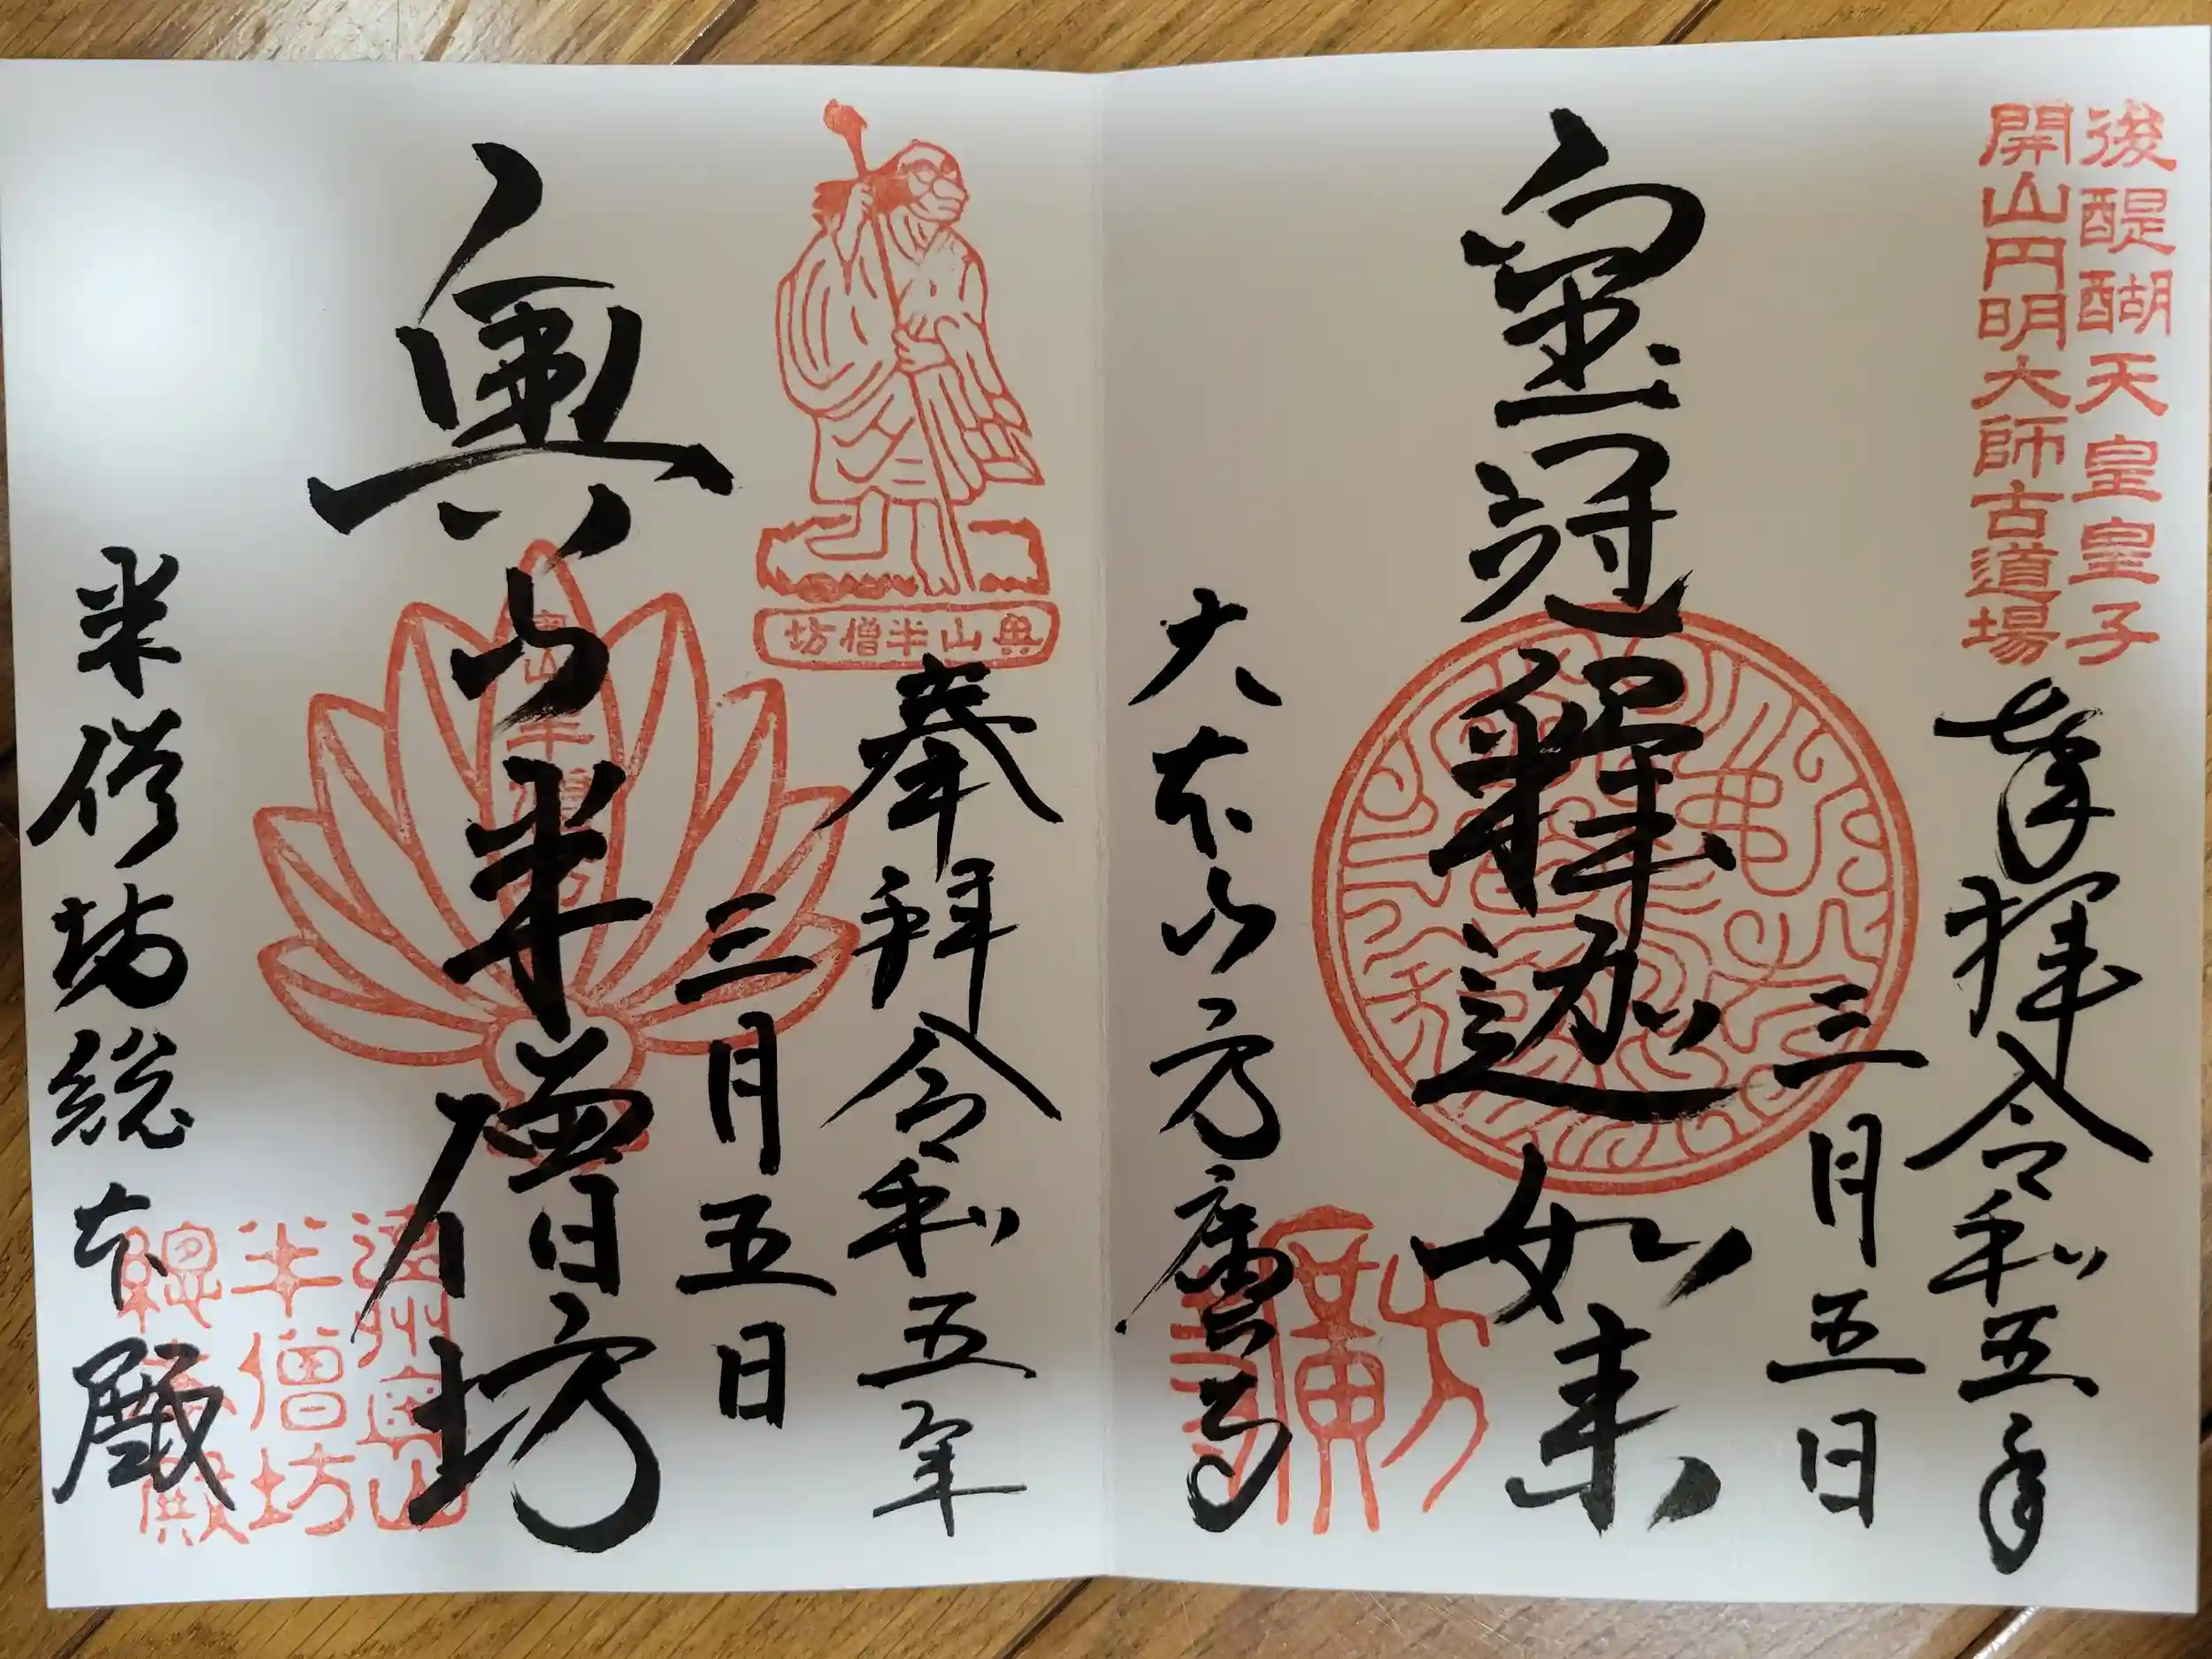 後醍醐天皇皇子
開山円明大師古道場
奉拝 令和五年
三月五日
宝冠釋迦如来
大本山方廣寺
方廣寺
奥山半僧坊
奉拝 令和五年
三月五日
奥山半僧坊
奥山半僧坊
半僧坊総本殿
遠州奥山
半僧坊
總本殿